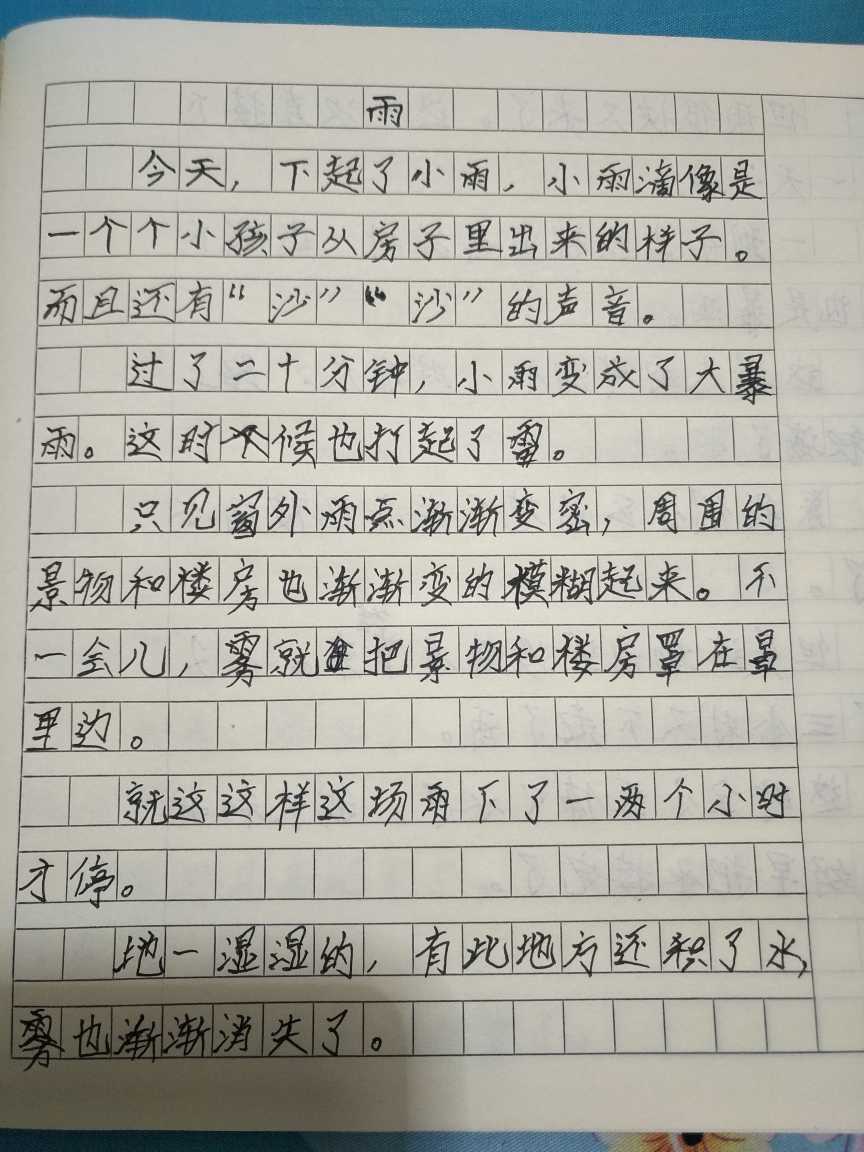 雨
今天，下起了小雨，小雨滴像是
一个个小孩子从房子里出来的样子。
而且还有“沙”“沙”的声音。
过了二十分钟，小雨变成了大暴
雨。这时候也打起了雷。
只见窗外雨点渐渐变密，周围的
景物和楼房也渐渐变的模糊起来。不
一会儿，雾就把景物和楼房罩在
里边。
就这这样这场雨下了一两个小时
才停。
地一湿湿的，有此地方还积了水，
雾也渐渐消失了。